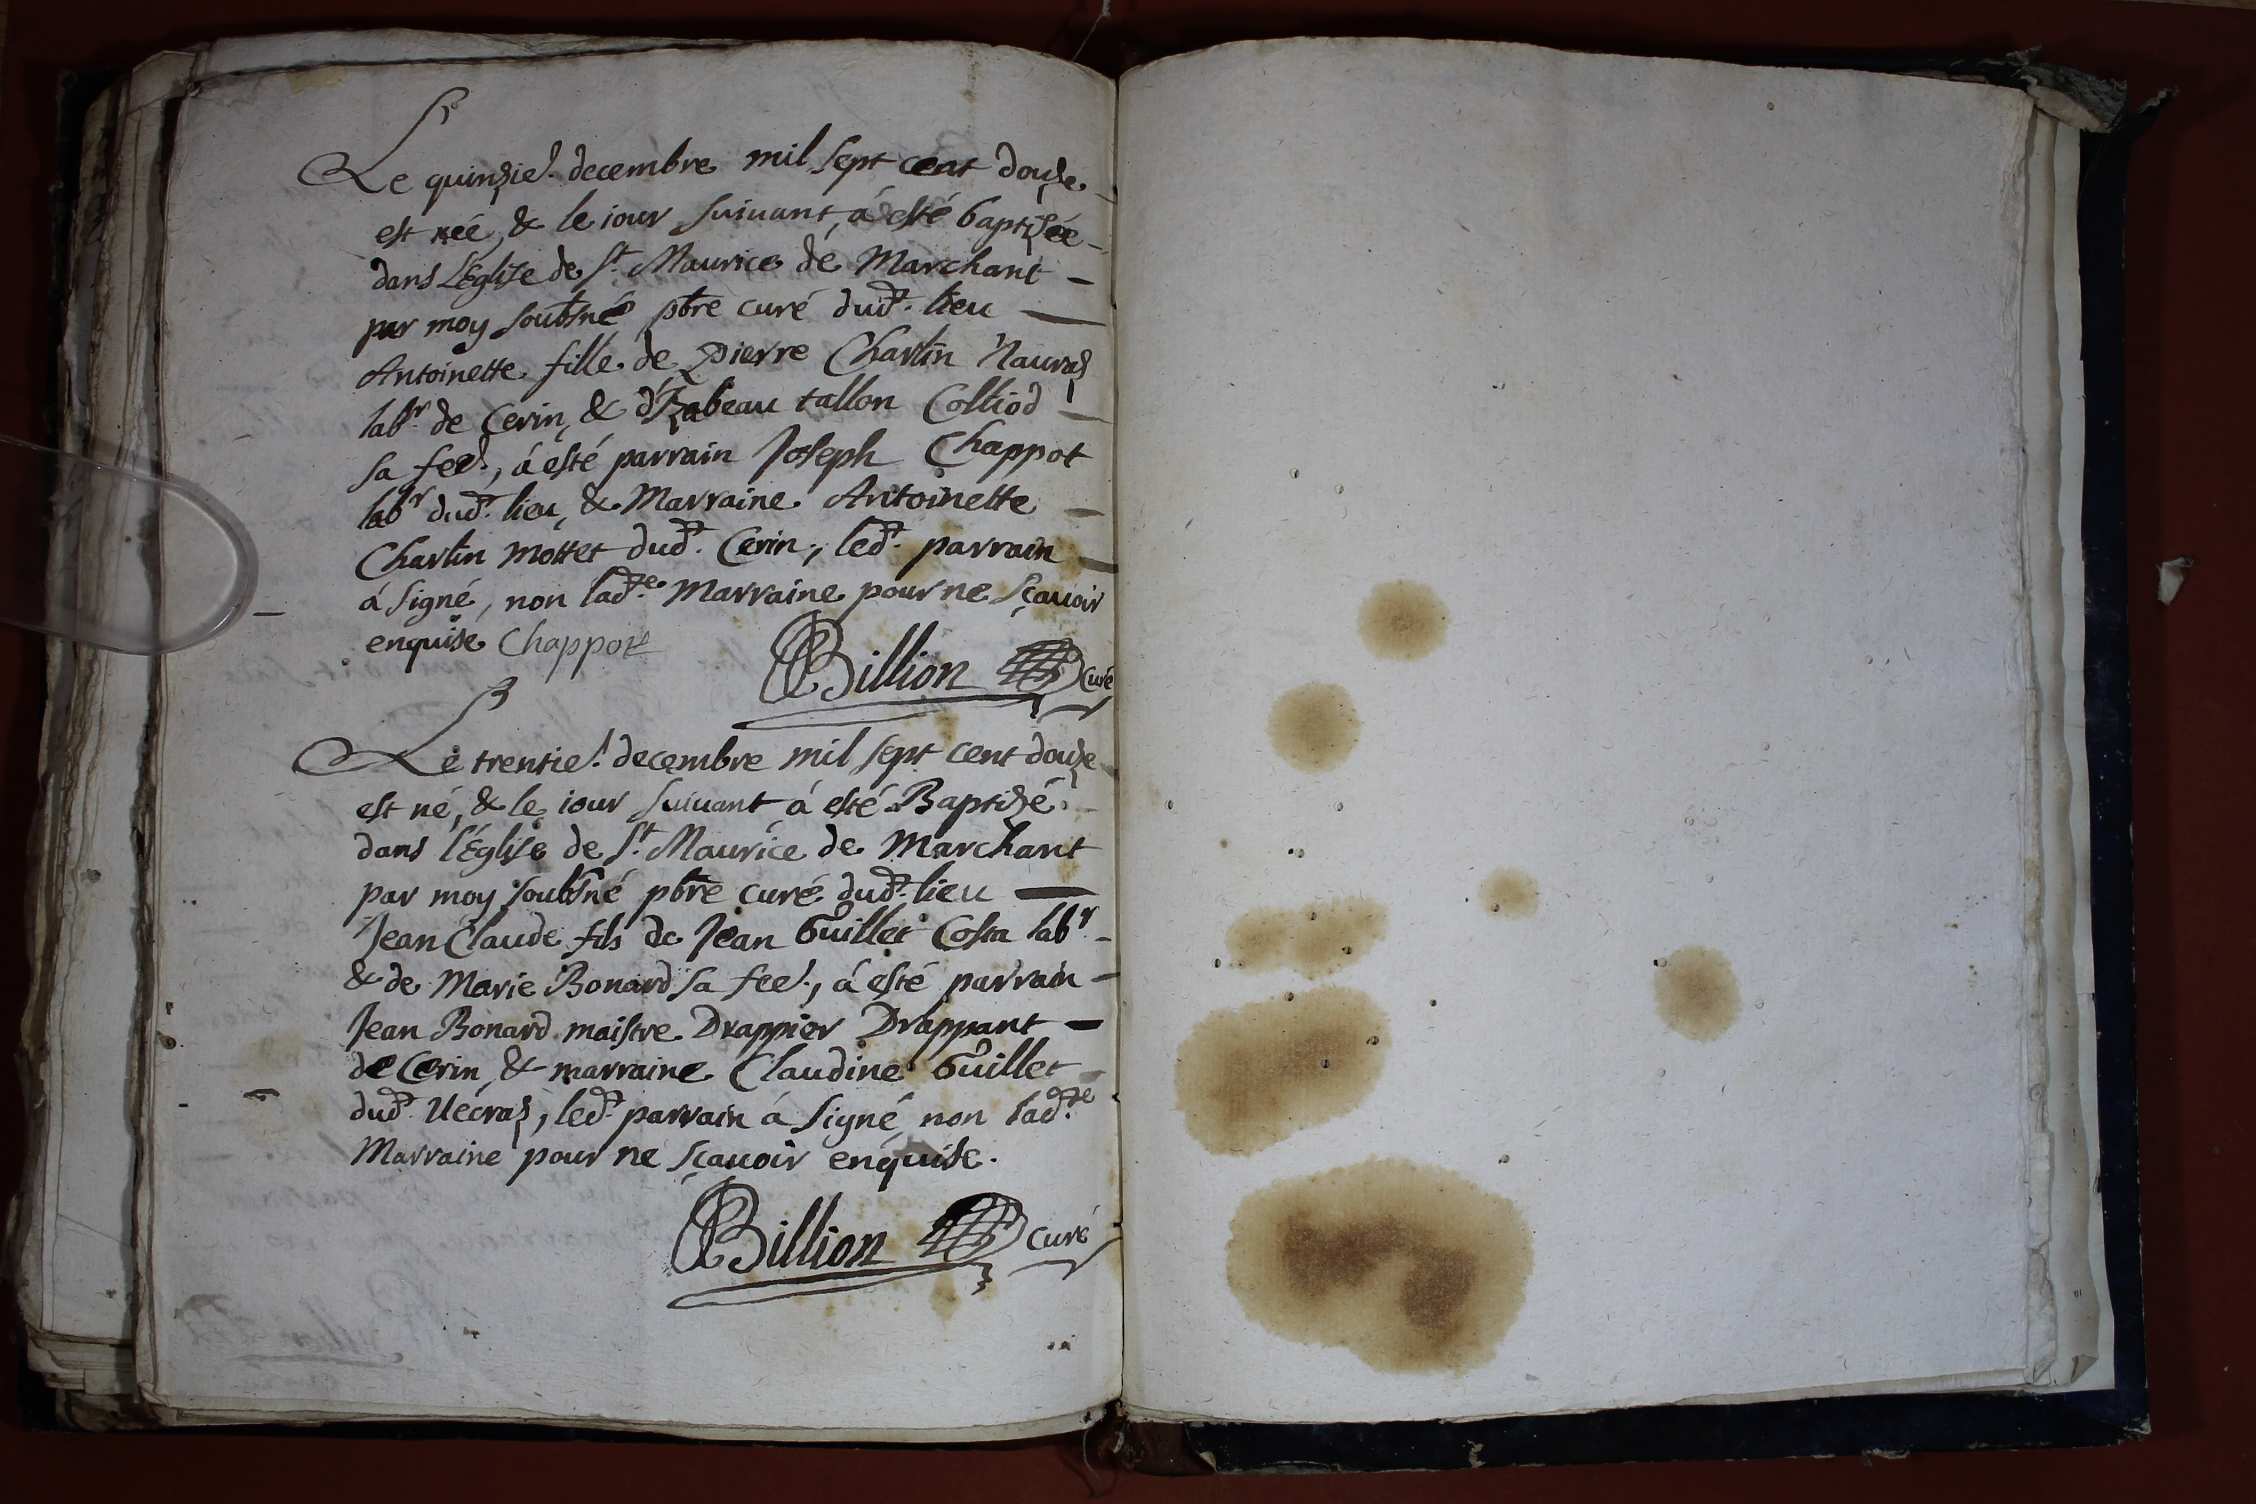 Le quinzie. decembre mil sept cent douze
est née, & le iour suiuant, á esté baptizée
dans L'Eglise de St. Maurice de Marchant
par moy soubsné pbre curé dudt. lieu
Antoinette fille de Pierre Charlin Nauraz
labr de Cerin, & d'Izabeau tallon Colliod
sa fee., á esté parrain Joseph Chappot
labr dudt. lieu, & Marraine Antoinette
Charlin Mottet dudt. Cerin, ledt. parrain
á signé, non ladte. Marraine pour ne sçauoir
enquise Chappot
Billion curé
Le trentie. decembre mil sept cent douze
est né, & le iour suiuant á esté Baptizé
dans l'Eglise de St. Maurice de Marchant
par moy soubsné pbre curé dudt. lieu
Jean Claude fils de Jean Guillet Costa labr
& de Marie Bonard sa fee., á esté parrain
Jean Bonard maistre Drappier Drappant
de Cerin, & marraine Claudine Guillet
dudt. Uécraz, ledt. parrain á signé, non ladte.
Marraine pour ne sçauoir enquise.
Billion curé